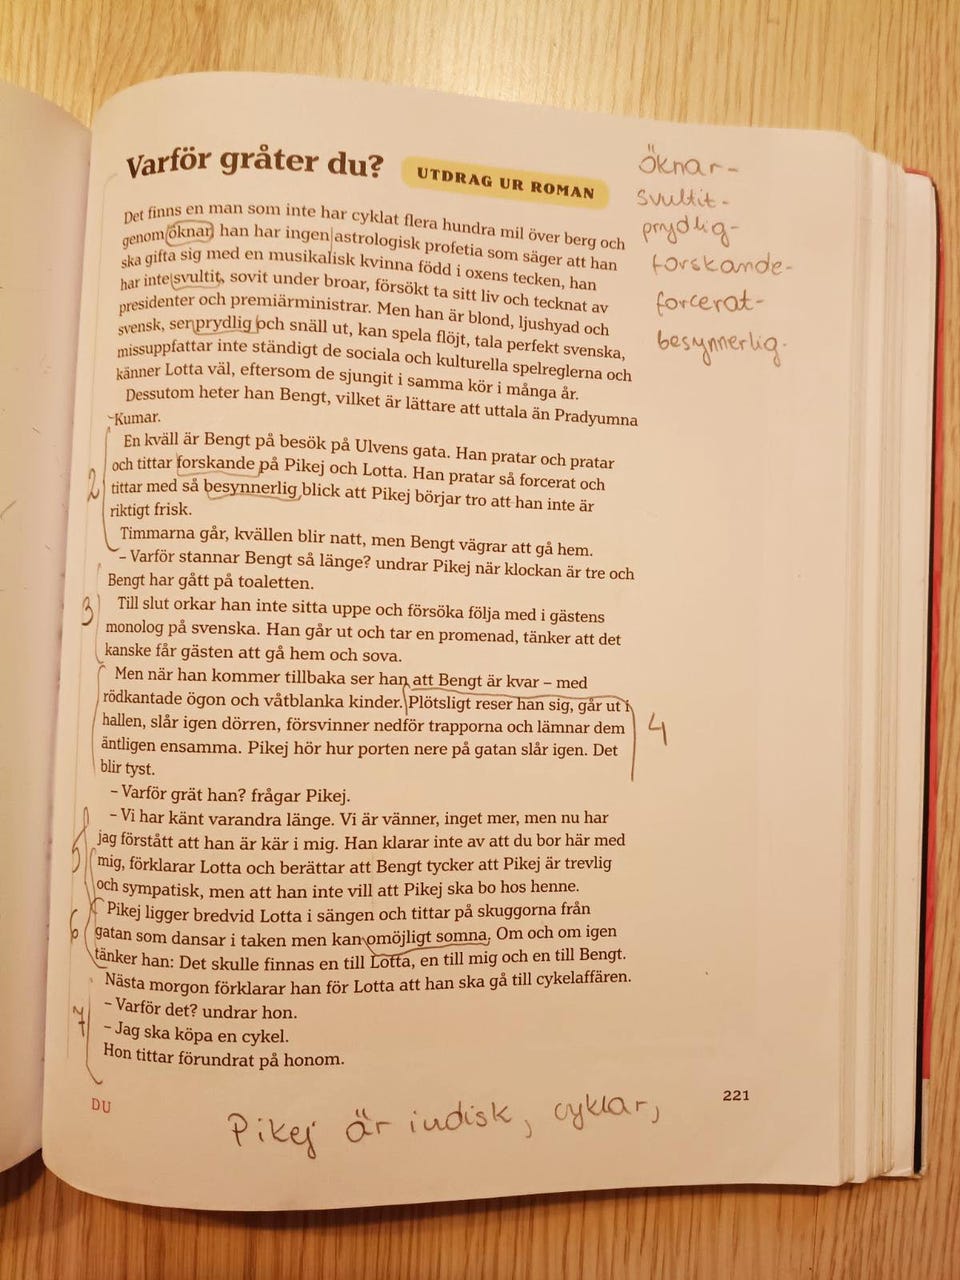 Varför gråter du?
UTDRAG UR ROMAN
Det finns en man som inte har cyklat flera hundra mil över berg och
genom öknar, han har ingen astrologisk profetia som säger att han
ska gifta sig med en musikalisk kvinna född i oxens tecken, han
har inte svultit, sovit under broar, försökt ta sitt liv och tecknat av
presidenter och premiärministrar. Men han är blond, ljushyad och
svensk, ser prydlig och snäll ut, kan spela flöjt, tala perfekt svenska,
missuppfattar inte ständigt de sociala och kulturella spelreglerna och
känner Lotta väl, eftersom de sjungit i samma kör i många år.
Dessutom heter han Bengt, vilket är lättare att uttala än Pradyumna
Kumar.
En kväll är Bengt på besök på Ulvens gata. Han pratar och pratar
och tittar forskande på Pikej och Lotta. Han pratar så forcerat och
tittar med så besynnerlig blick att Pikej börjar tro att han inte är
riktigt frisk.
Timmarna går, kvällen blir natt, men Bengt vägrar att gå hem.
– Varför stannar Bengt så länge? undrar Pikej när klockan är tre och
Bengt har gått på toaletten.
Till slut orkar han inte sitta uppe och försöka följa med i gästens
monolog på svenska. Han går ut och tar en promenad, tänker att det
kanske får gästen att gå hem och sova.
Men när han kommer tillbaka ser han att Bengt är kvar – med
rödkantade ögon och våtblanka kinder. Plötsligt reser han sig, går ut i
hallen, slår igen dörren, försvinner nedför trapporna och lämnar dem
äntligen ensamma. Pikej hör hur porten nere på gatan slår igen. Det
blir tyst.
– Varför grät han? frågar Pikej.
– Vi har känt varandra länge. Vi är vänner, inget mer, men nu har
jag förstått att han är kär i mig. Han klarar inte av att du bor här med
mig, förklarar Lotta och berättar att Bengt tycker att Pikej är trevlig
och sympatisk, men att han inte vill att Pikej ska bo hos henne.
Pikej ligger bredvid Lotta i sängen och tittar på skuggorna från
gatan som dansar i taken men kan omöjligt somna. Om och om igen
tänker han: Det skulle finnas en till Lotta, en till mig och en till Bengt.
Nästa morgon förklarar han för Lotta att han ska gå till cykelaffären.
– Varför det? undrar hon.
– Jag ska köpa en cykel.
Hon tittar förundrat på honom.
DU
221
öknar-
svultit-
prydlig-
forskande-
forcerat-
besynnerlig-
2
3
4
5
6
7
Pikej är indisk, cyklar,